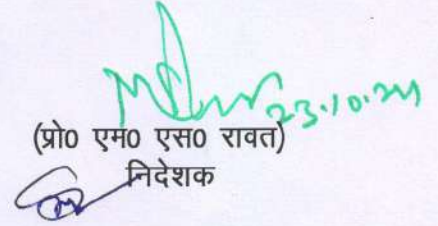 23.10.24
(प्रो0 एम0 एस0 रावत)
निदेशक